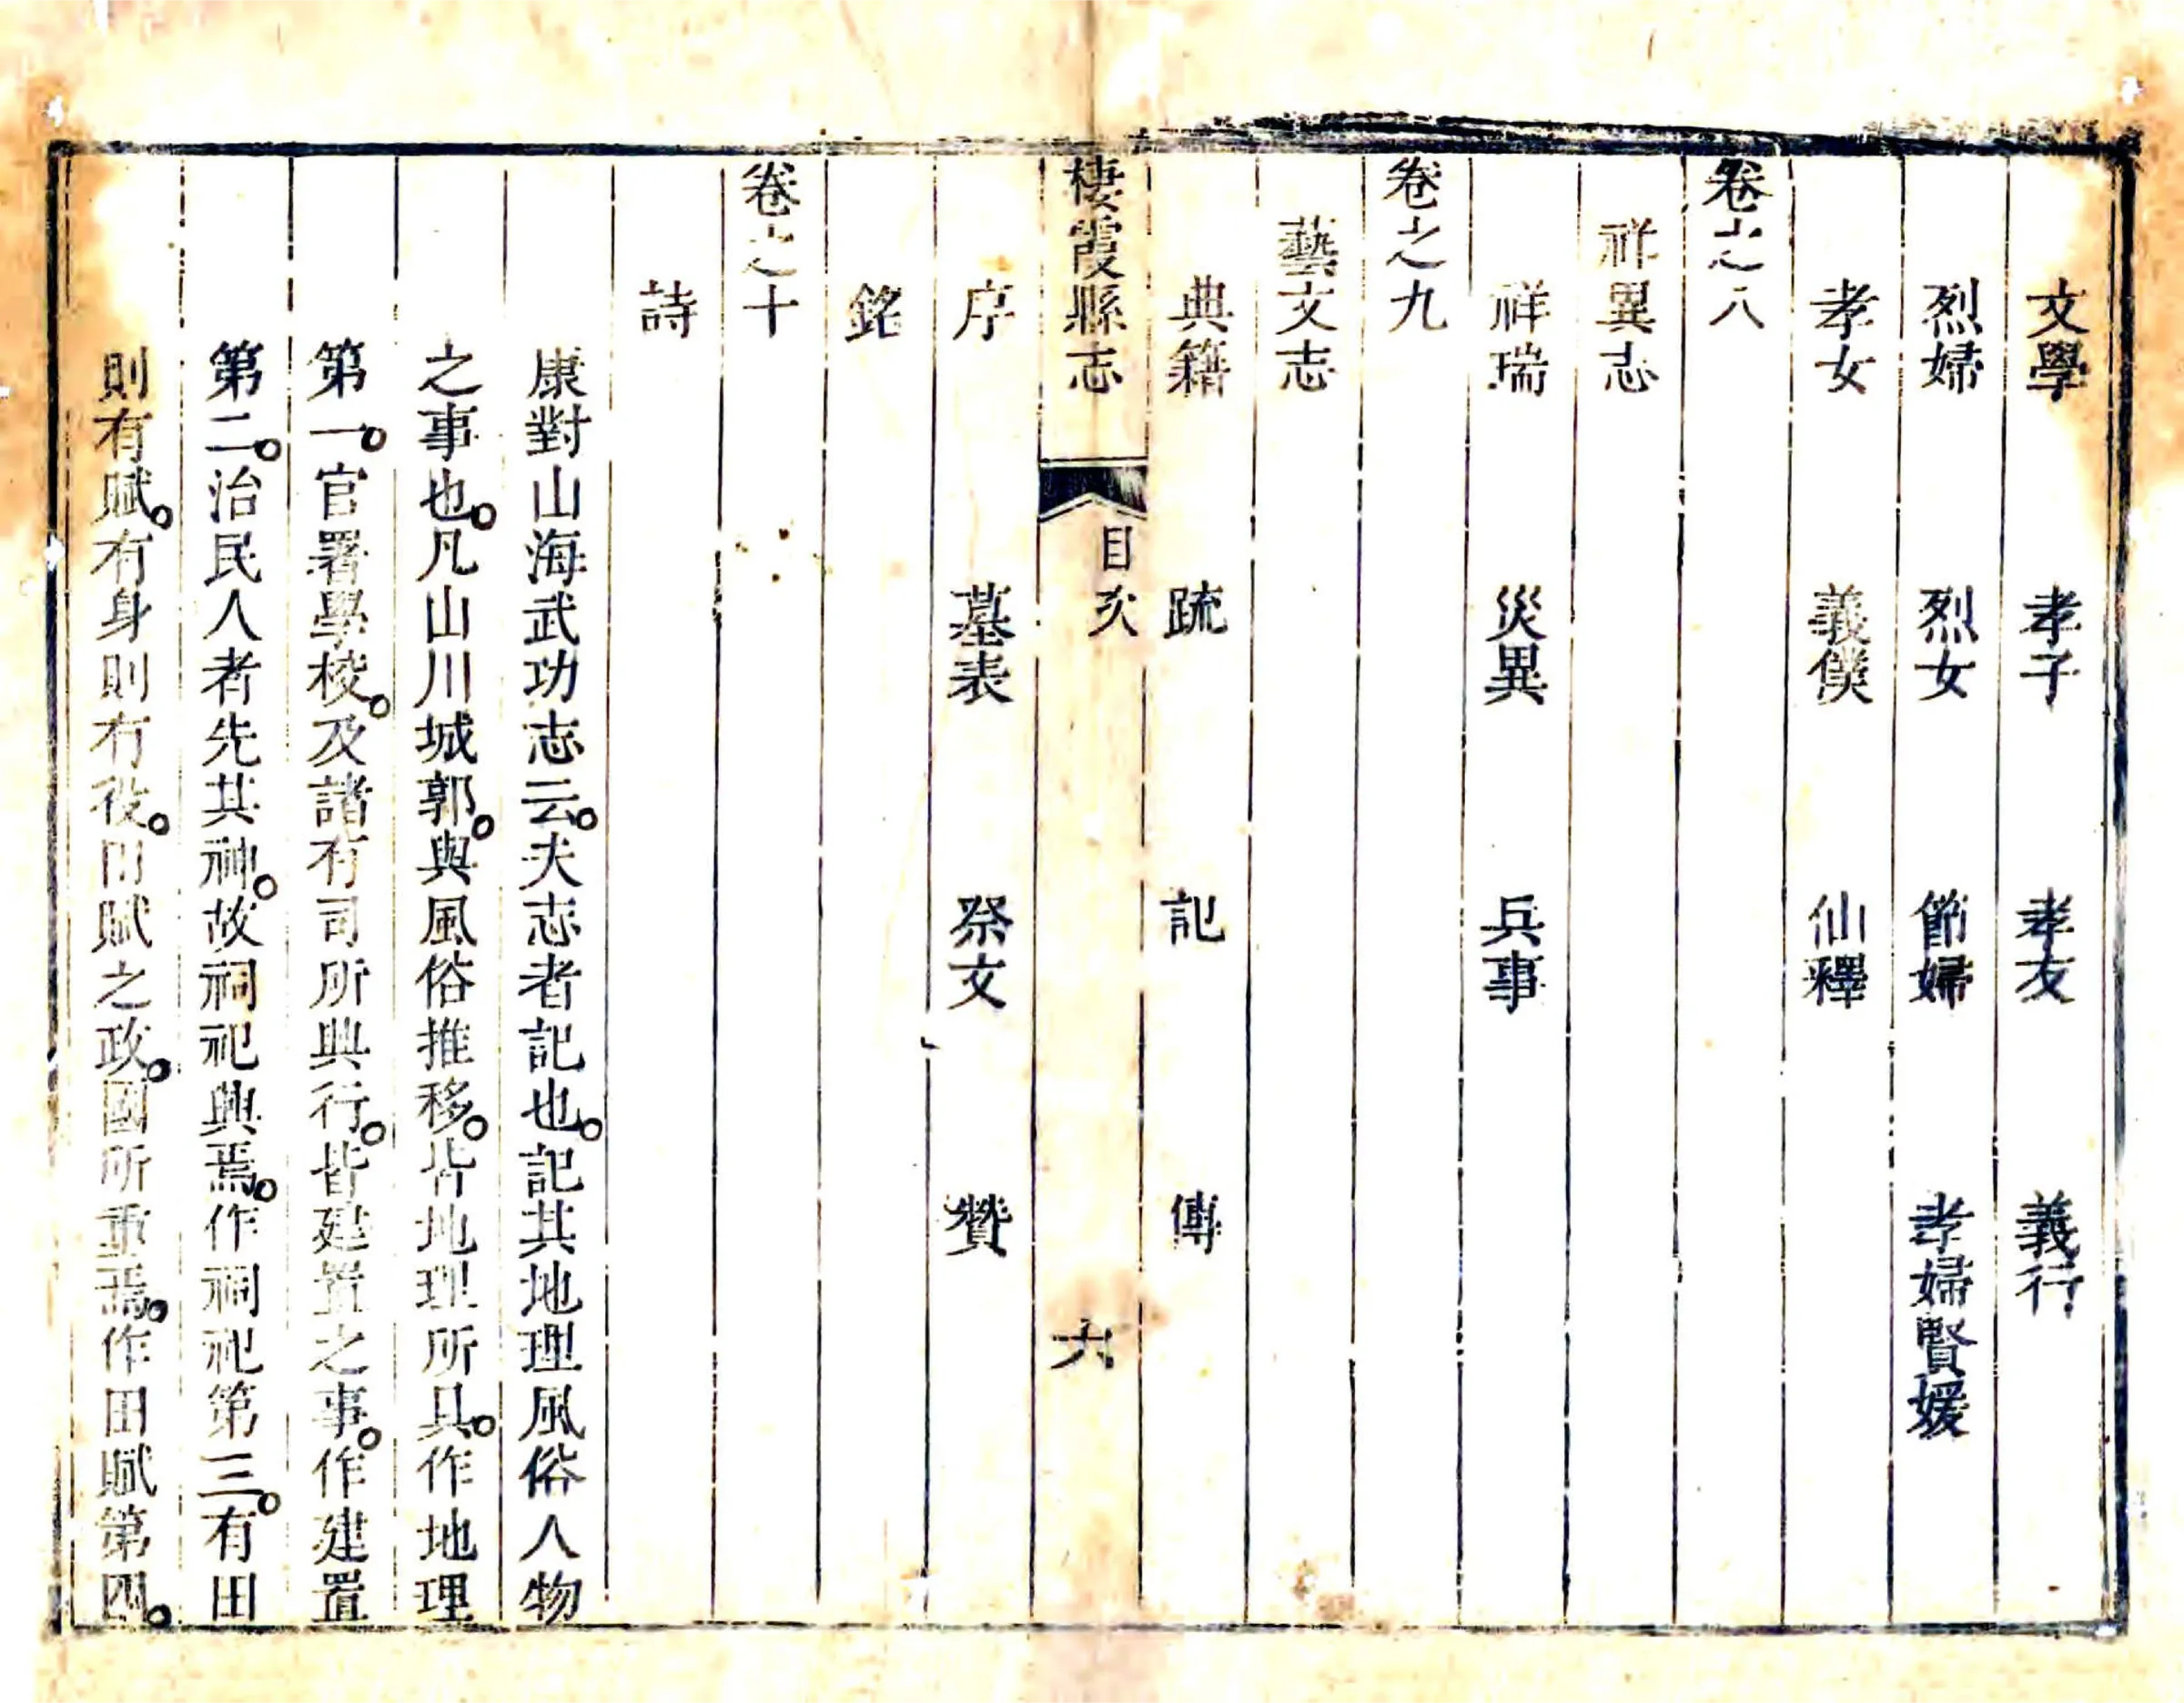 文學　孝子　孝友　義行
烈婦　烈女　節婦　孝婦賢媛
孝女　義僕　仙釋
卷之八
祥異志
祥瑞　災異　兵事
卷之九
藝文志
典籍　疏　記　傳
棲霞縣志　目次　六
序　墓表　祭文　贊
銘
卷之十
詩
康對山海武功志云。夫志者記也。記其地理風俗人物
之事也。凡山川城郭。與風俗推移。皆地理所具。作地理
第一。官署學校。及諸有司所興行。皆建置之事。作建置
第二。治民人者先其神。故祠祀興焉。作祠祀第三。有田
則有賦。有身則有役。田賦之政。國所重焉。作田賦第四。